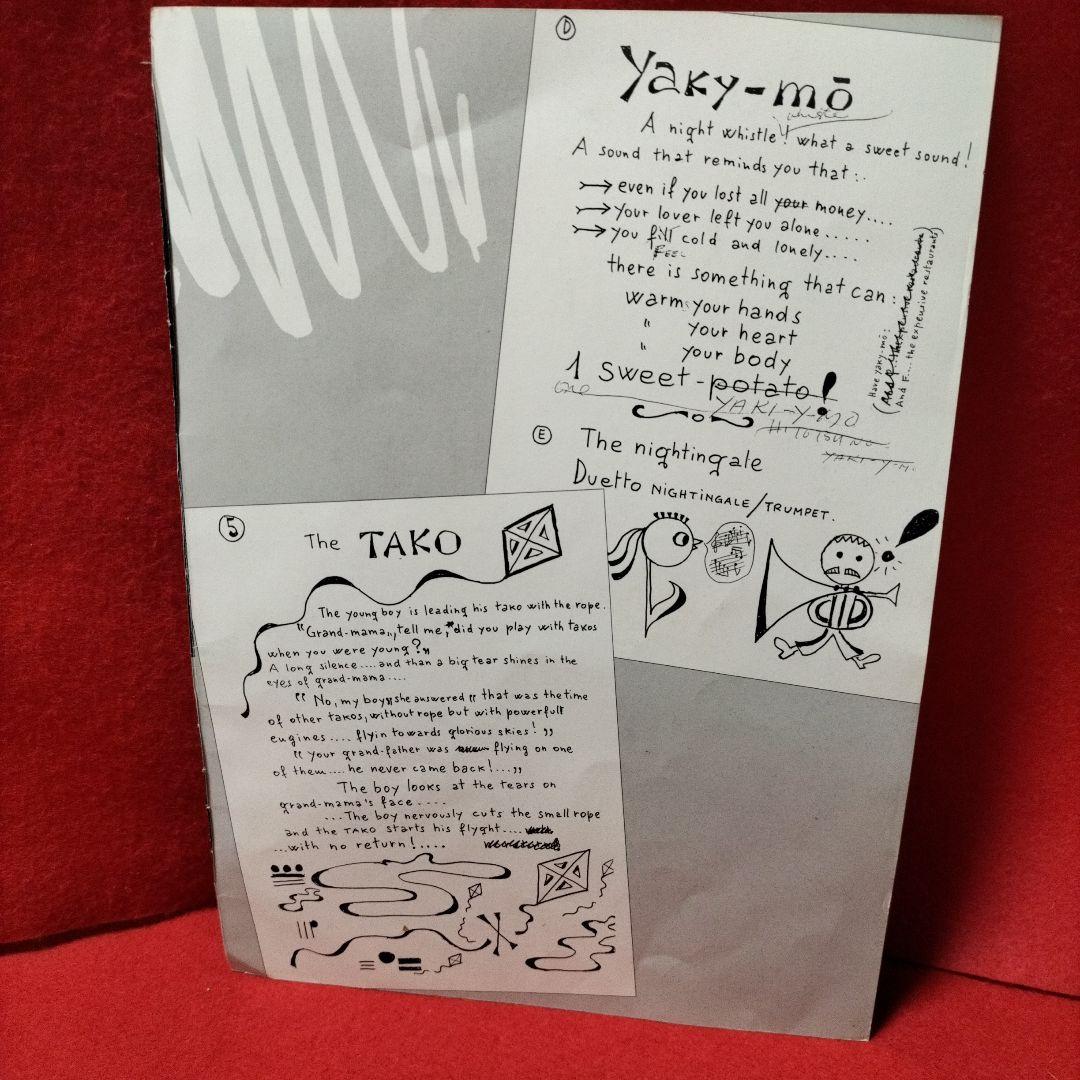 D
Yaky-mō
whistle
A night whistle! what a sweet sound!
A sound that reminds you that:.
even if you lost all your money....
your lover left you alone.....
you fill cold and lonely....
FEEL
there is something that can:
warm your hands
" your heart
" your body
1 sweet-potato!
One YAKI-Y-MO
HITOTSU NO
YAKI-Y-M
Have yaky-mō:
And F.... the expensive restaurants)
E
The nightingale
Duetto NIGHTINGALE/TRUMPET.
5
The TAKO
The young boy is leading his tako with the rope.
"Grand-mama,, tell me, did you play with takos
when you were young?"
A long silence....and than a big tear shines in the
eyes of grand-mama....
" No, my boy,, she answered " that was the time
of other takos, without rope but with powerfull
engines .... flyin towards glorious skies! ,,
" your grand-father was flying on one
of them....he never came back!...,,
The boy looks at the tears on
grand-mama's face....
...The boy nervously cuts the small rope
and the TAKO starts his flyght....
...with no return!....